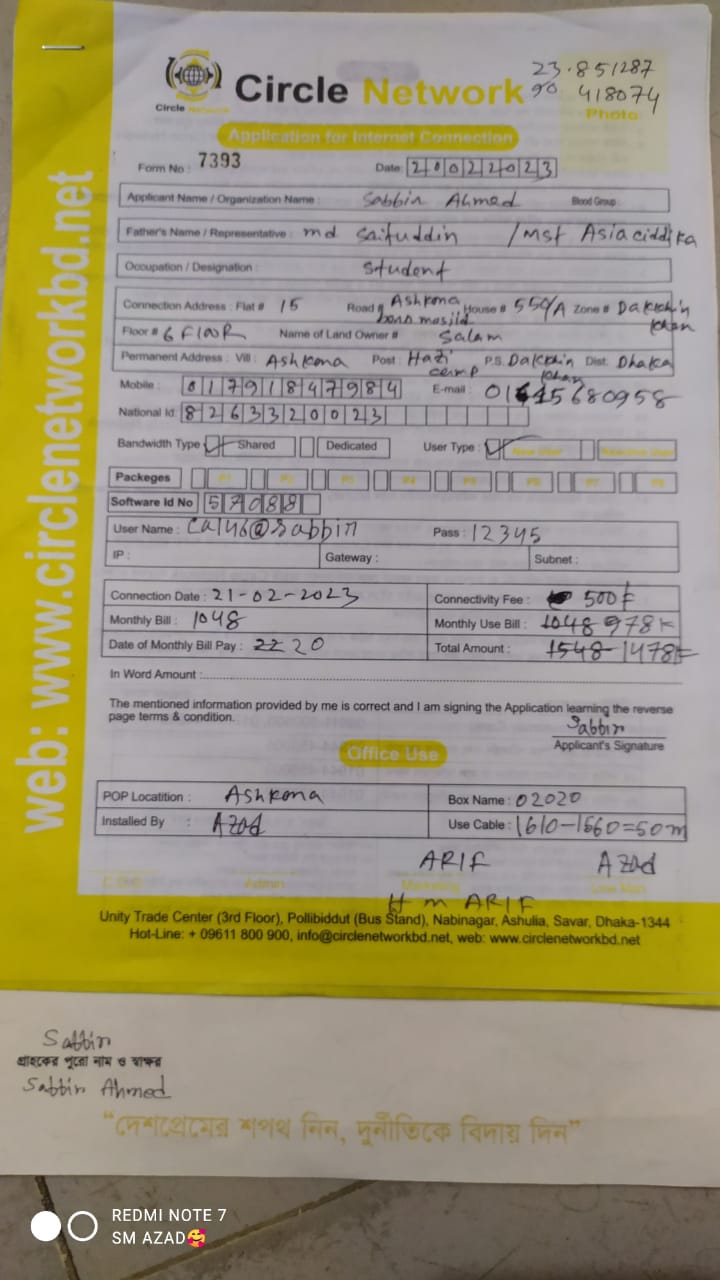 23.851287
90.418074
Circle Network
Circle Network
Photo
Application for Internet Connection
Form No : 7393 Date: 20022023
Applicant Name / Organization Name : Sabbir Ahmed Blood Group :
Father's Name / Representative : md saifuddin / Mst Asia ciddika
Occupation / Designation : Student
Connection Address : Flat # 15 Road # Ashkona House # 550/A Zone # Dakkhin khan
Floor # 6 FlooR Name of Land Owner # Salam
Permanent Address : Vill : Ashkona Post : Hazi camp P.S. Dakkhin khan Dist. Dhaka
Mobile : 01791847984 E-mail :
National Id: 8263320023
Bandwidth Type Shared Dedicated User Type : New User
Packeges P1 P2 P3 P4 P5 P6 P7 P8
Software Id No 57088
User Name : Pass : 12345
IP : Gateway : Subnet :
Connection Date : 21-02-2023 Connectivity Fee : 500
Monthly Bill : 1048 Monthly Use Bill : 1048 978
Date of Monthly Bill Pay : 22 20 Total Amount : 1548 1478
In Word Amount :
The mentioned information provided by me is correct and I am signing the Application learning the reverse
page terms & condition.
Sabbir
Applicant's Signature
Office Use
POP Locatition : Ashkona Box Name : 02020
Installed By : Azad Use Cable : 1610-1560=50m
ARIF Azad
Admin Marketing
H m ARIF
Unity Trade Center (3rd Floor), Pollibiddut (Bus Stand), Nabinagar, Ashulia, Savar, Dhaka-1344
Hot-Line: + 09611 800 900, info@circlenetworkbd.net, web: www.circlenetworkbd.net
web: www.circlenetworkbd.net
Sabbir
গ্রাহকের পুরো নাম ও স্বাক্ষর
Sabbir Ahmed
“দেশপ্রেমের শপথ নিন, দুর্নীতিকে বিদায় দিন”
REDMI NOTE 7
SM AZAD🥰